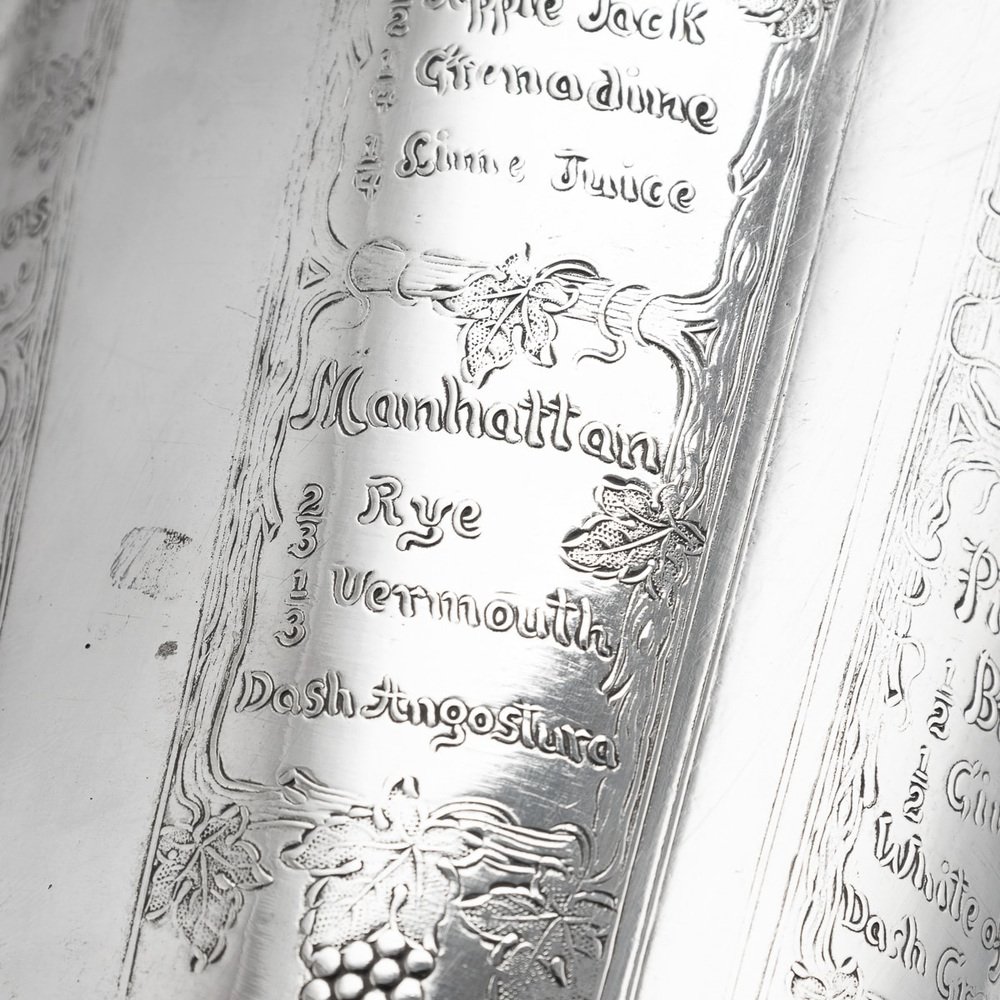 1/2 Apple Jack
1/4 Grenadine
1/4 Lime Juice
Manhattan
2/3 Rye
1/3 Vermouth
Dash Angostura
1/2
1/2
White
Dash